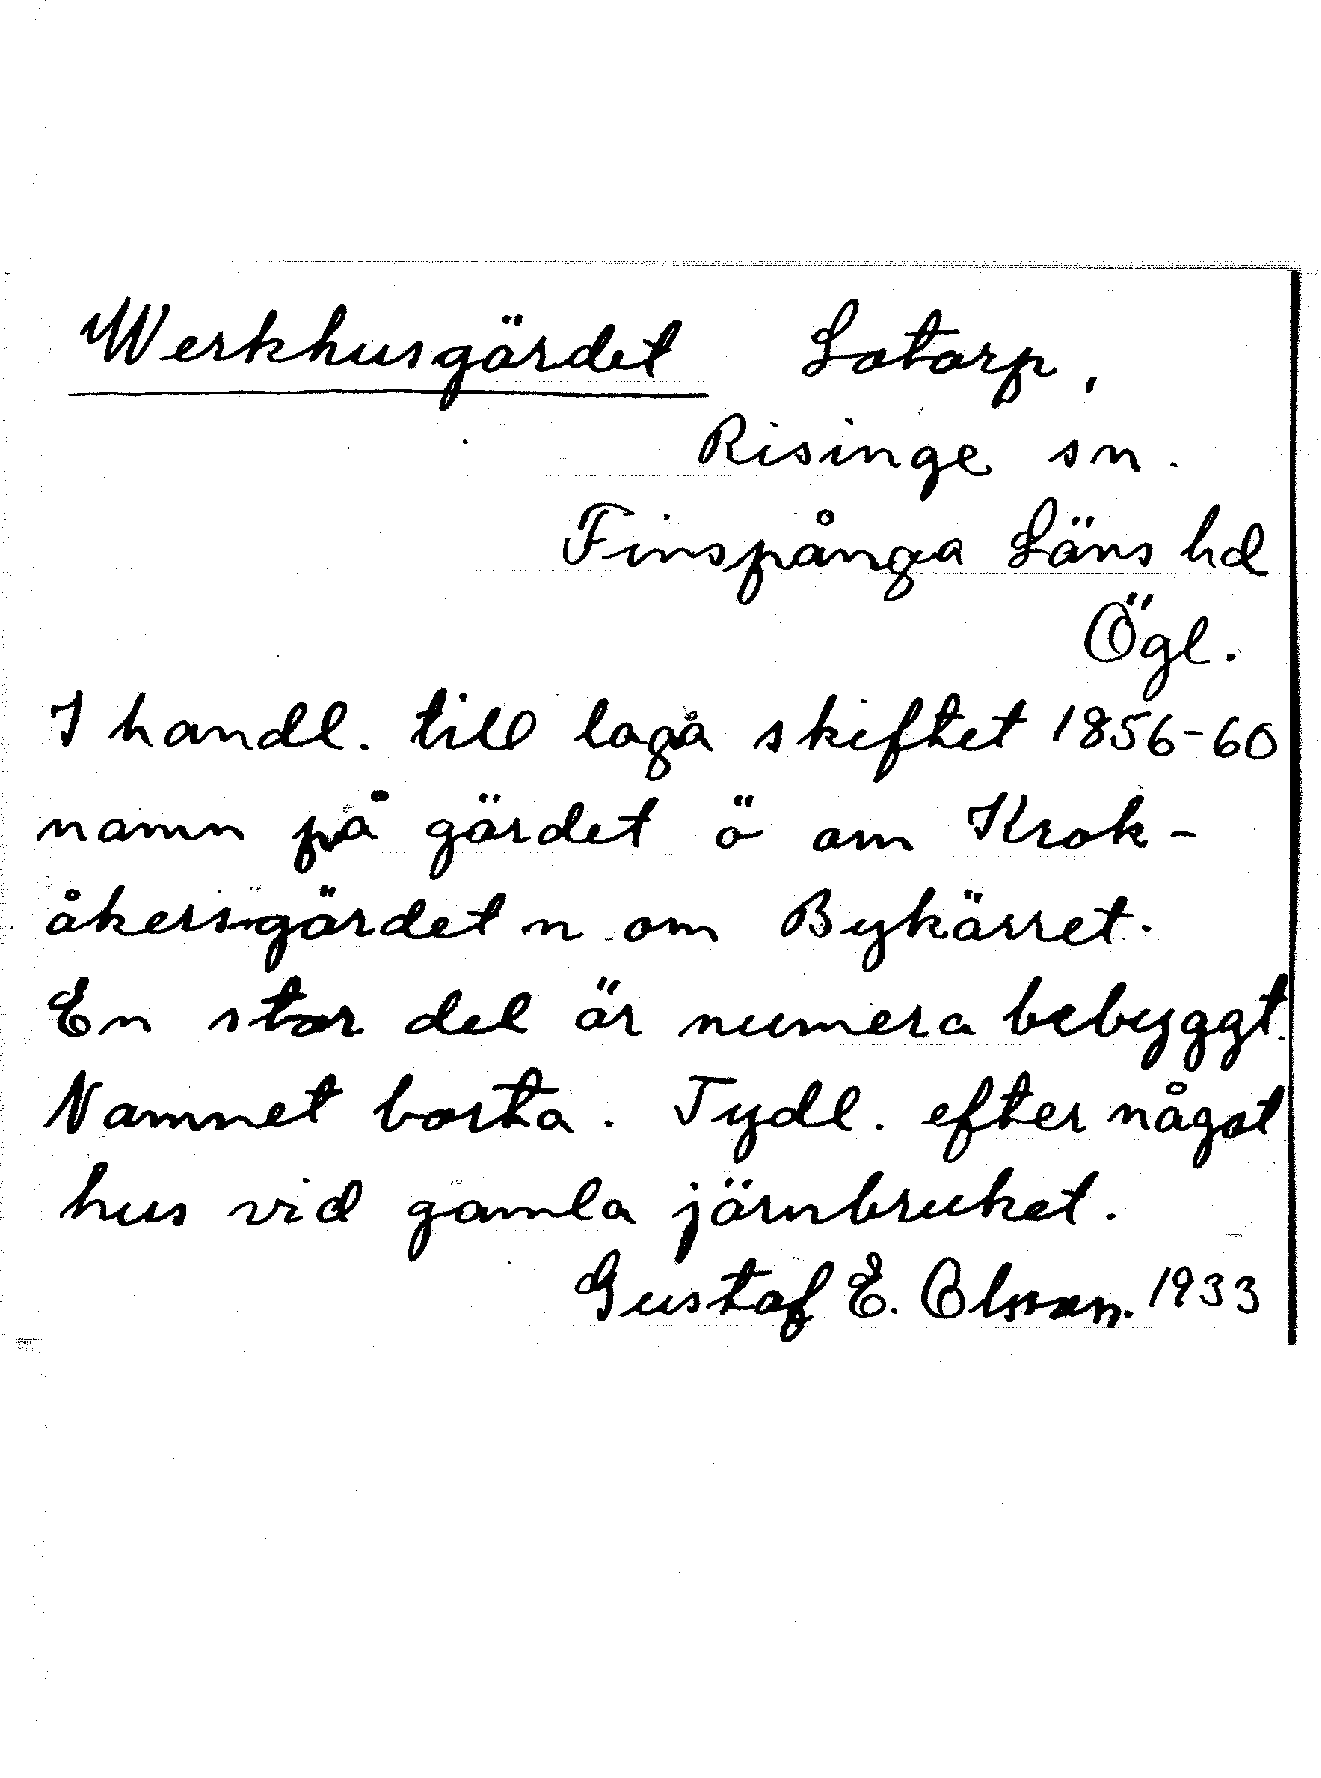 Werkhusgärdet Lotorp,
Risinge sn.
Finspånga Läns hd
Ögl.
I handl. till laga skiftet 1856-60
namn på gärdet ö om Krok-
åkersgärdet n om Bykärret.
En stor del är numera bebyggt.
Namnet borta. Tydl. efter något
hus vid gamla järnbruket.
Gustaf E. Olsson. 1933